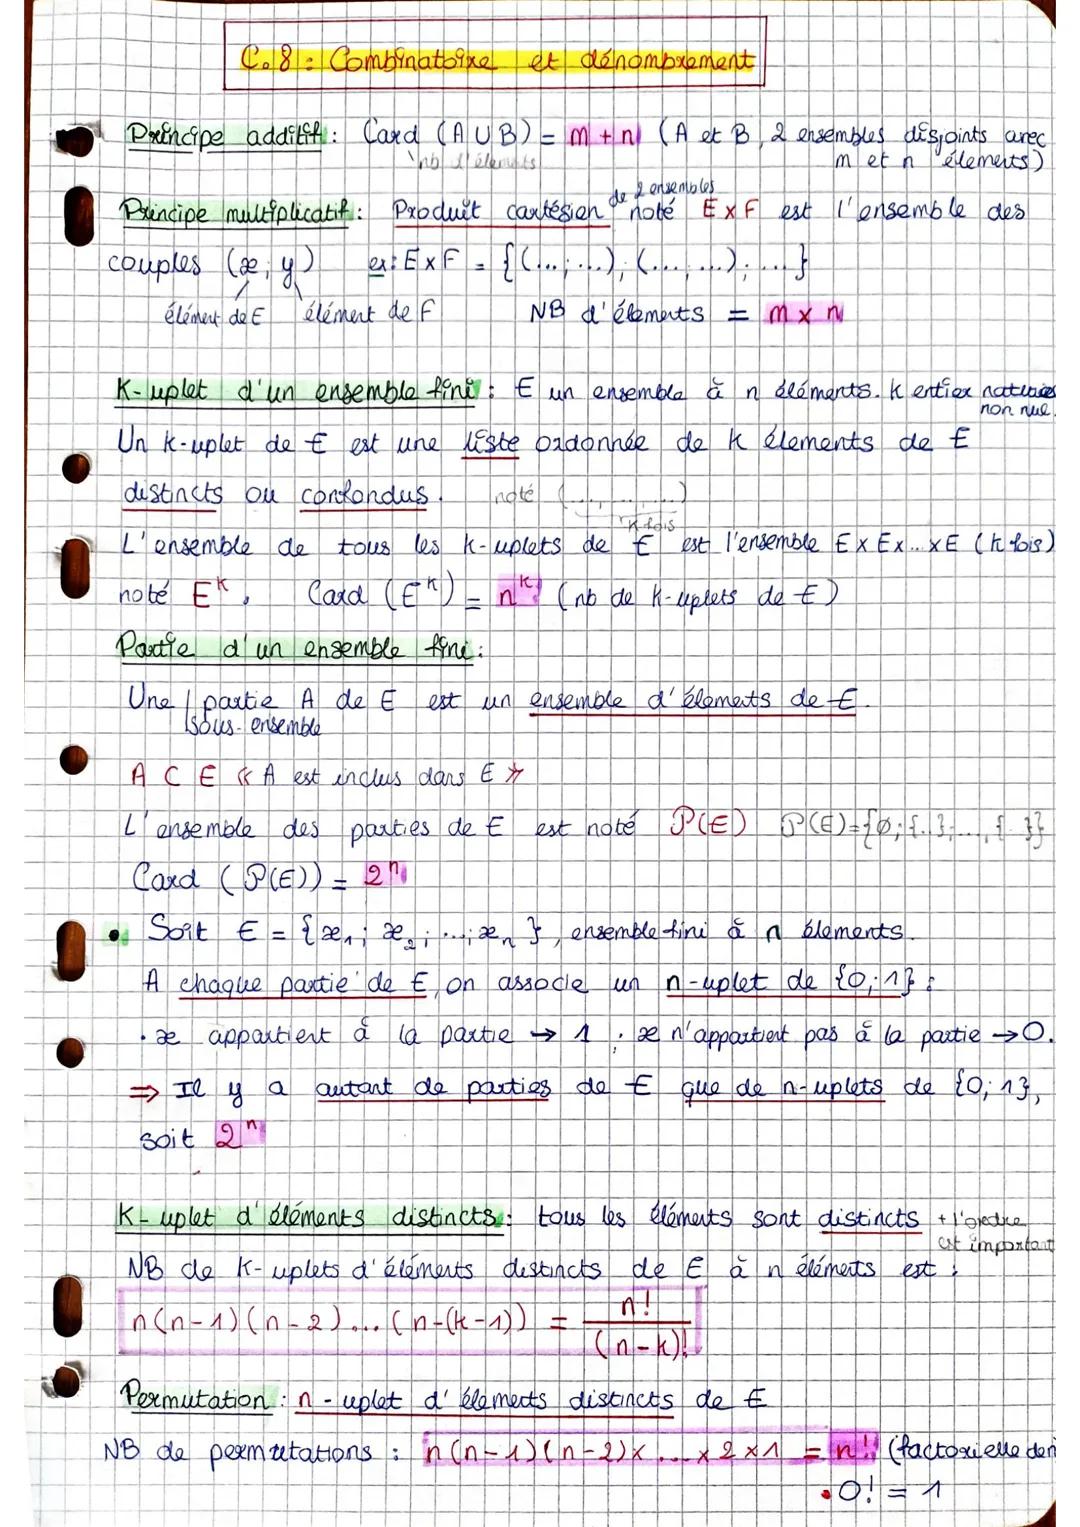 C.8 : Combinatoire et dénombrement
Principe additif : Card (A ∪ B) = m + n (A et B, 2 ensembles disjoints avec
nb d'éléments m et n éléments)
de 2 ensembles
Principe multiplicatif : Produit cartésien noté E x F est l'ensemble des
couples (x ; y) ex : E x F = {(...;...) ; (...;...) ; ...}
élément de E élément de F NB d'éléments = m x n
K-uplet d'un ensemble fini : E un ensemble à n éléments. K entier naturel
non nul.
Un k-uplet de E est une liste ordonnée de k éléments de E
distincts ou confondus. noté (..., ..., ...)
k fois
L'ensemble de tous les k-uplets de E est l'ensemble E x E x ... x E (k fois)
noté E^k, Card (E^k) = n^k (nb de k-uplets de E)
Partie d'un ensemble fini :
Une partie A de E est un ensemble d'éléments de E.
sous-ensemble
A ⊂ E « A est inclus dans E »
L'ensemble des parties de E est noté P(E) P(E)={∅;{..};...,{..}}
Card (P(E)) = 2^n
• Soit E = {x₁ ; x₂ ; ... ; xₙ}, ensemble fini à n éléments.
A chaque partie de E, on associe un n-uplet de {0 ; 1} :
· x appartient à la partie → 1 . x n'appartient pas à la partie → 0.
⇒ Il y a autant de parties de E que de n-uplets de {0 ; 1},
soit 2^n
K-uplet d'éléments distincts : tous les éléments sont distincts + l'ordre
est important
NB de K-uplets d'éléments distincts de E à n éléments est :
n(n-1)(n-2)...(n-(k-1)) = n!/(n-k)!
Permutation : n-uplet d'éléments distincts de E
NB de permutations : n(n-1)(n-2)x...x2x1 = n! (factorielle de n
• 0! = 1